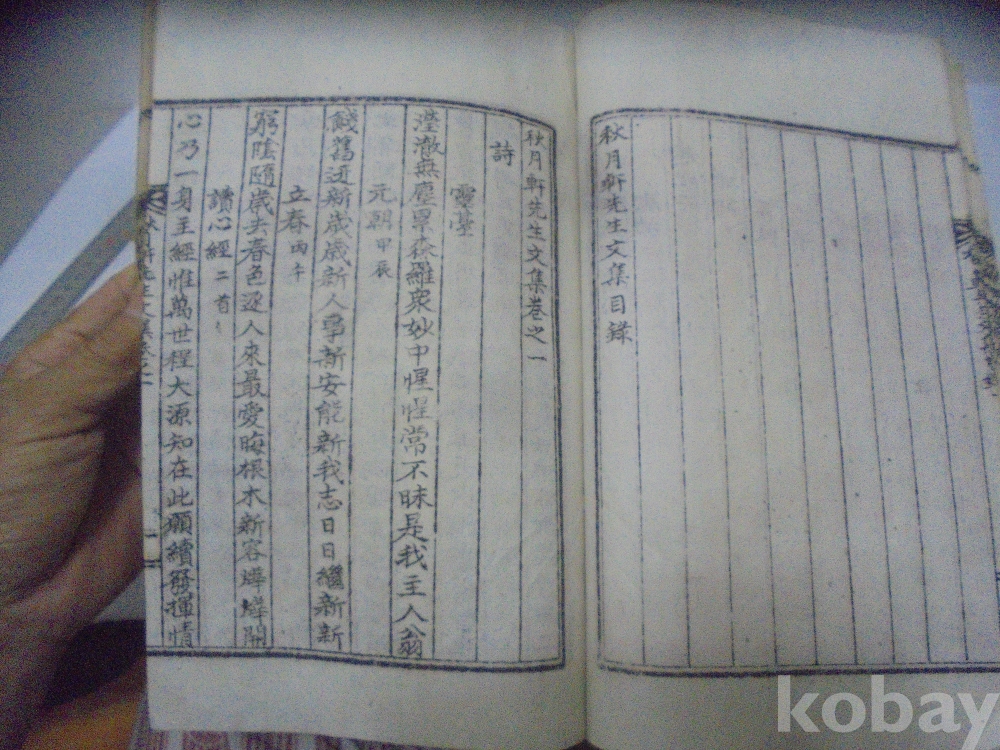 秋月軒先生文集目錄
秋月軒先生文集卷之一
詩
靈臺
瀅澈無塵累森羅衆妙中惺惺常不昧是我主人翁
元朝甲辰
餞舊迎新歲歲新人事新安能新我志日日繼新新
立春丙午
窮陰隨歲去春色逐人來最愛晦根木新容燁燁開
讀心經二首
心乃一身主經惟萬世程大源知在此願續發揮情
kobay